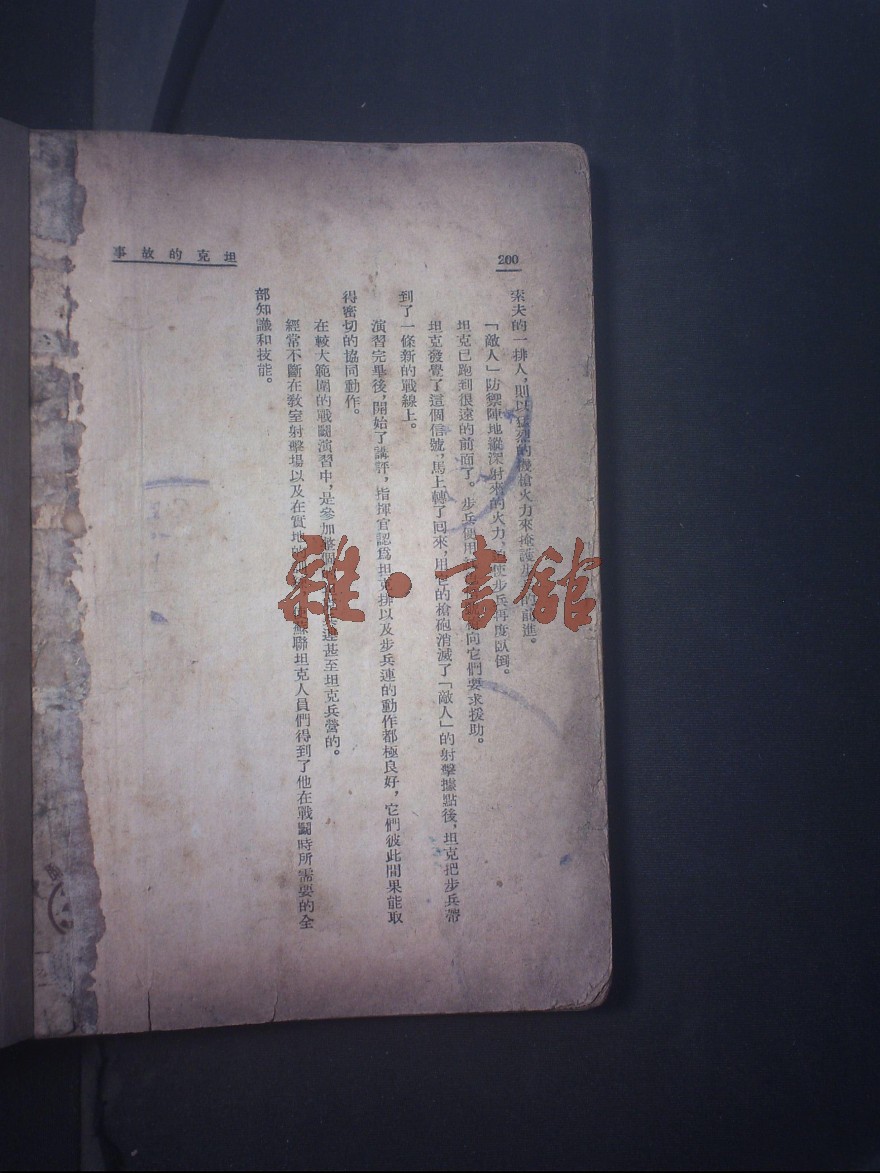 200
坦克的故事
索夫的一排人，則以猛烈的機槍火力來掩護步的前進。
「敵人」防禦陣地縱深射來的火力，使步兵再度臥倒。
坦克已跑到很遠的前面了。步兵便用向它們要求援助。
坦克發覺了這個信號，馬上轉了回來，用它的槍砲消滅了「敵人」的射擊據點後，坦克把步兵帶
到了一條新的戰線上。
演習完畢後，開始了講評，指揮官認爲坦克排以及步兵連的動作都極良好，它們彼此間果能取
得密切的協同動作。
在較大範圍的戰鬭演習中，是參加整個連甚至坦克兵營的。
經常不斷在敎室射擊場以及在實地的蘇聯坦克人員們得到了他在戰鬭時所需要的全
部知識和技能。
雜·書館